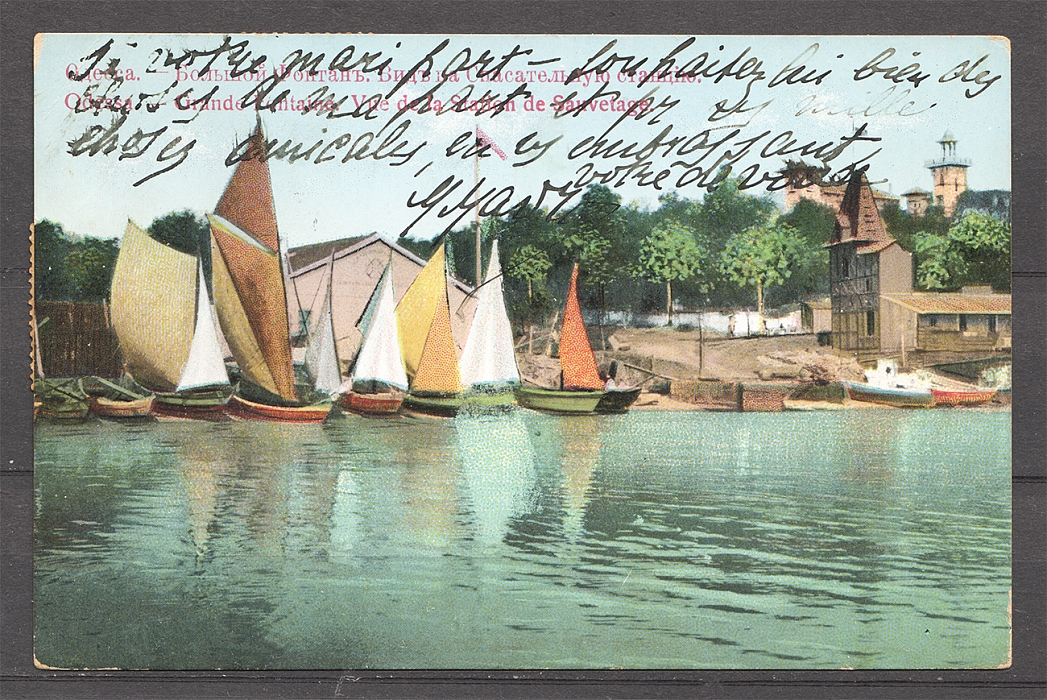 Одесса. — Большой Фонтанъ. Видъ на Спасательную станцію.
Odessa. — Grande Fontaine. Vue de la Station de Sauvetage.
Si votre mari part — souhaitez lui bien des
choses de ma part et pr vs mille
choses amicales, en vs embrassant
votre dévouée